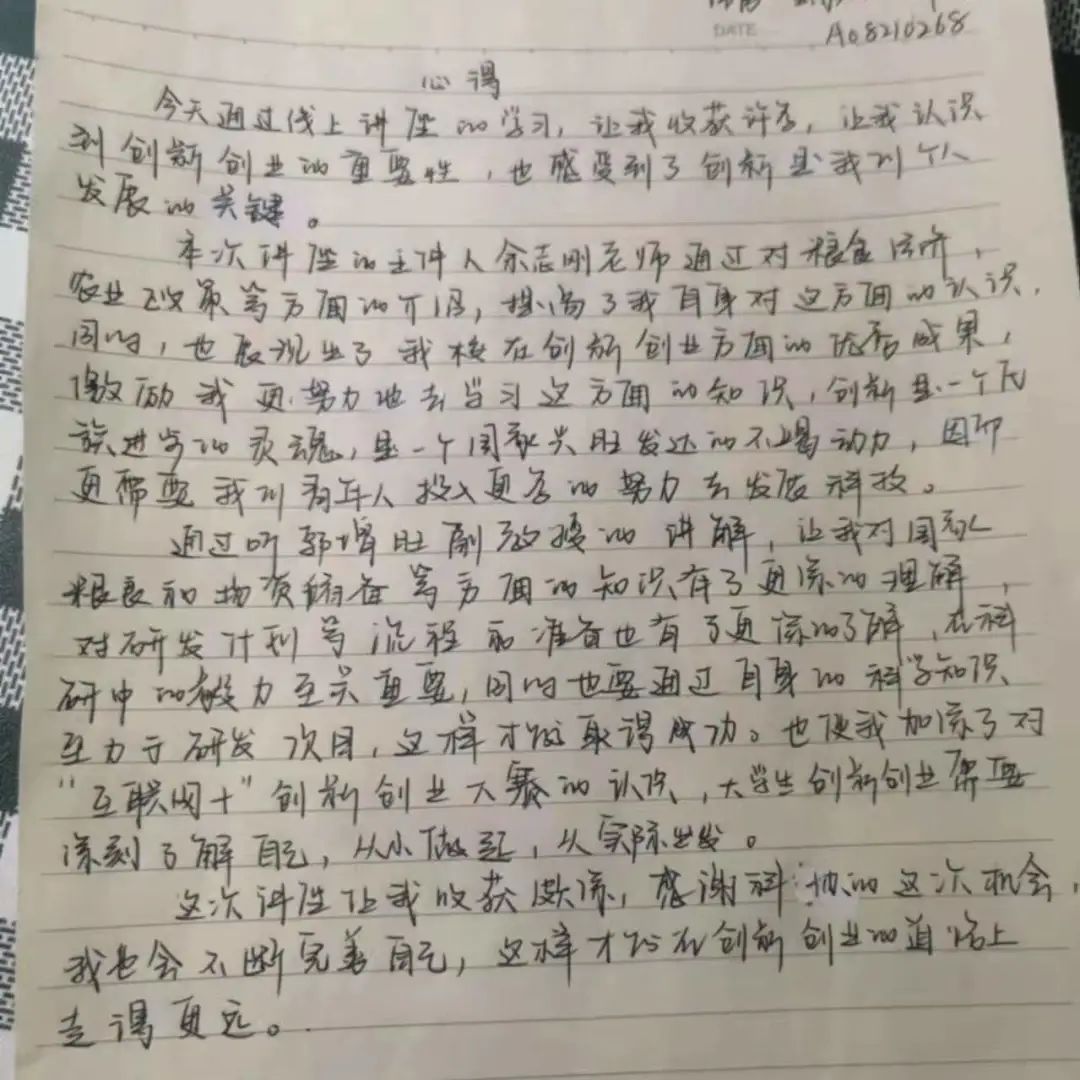 DATE
A08210268
心得
今天通过线上讲座的学习，让我收获许多，让我认识
到创新创业的重要性，也感受到了创新是我们个人
发展的关键。
本次讲座的主讲人余志刚老师通过对粮食经济，
农业政策等方面的介绍，提高了我自身对这方面的认识，
同时，也展现出了我校在创新创业方面的优秀成果，
激励我更努力地去学习这方面的知识，创新是一个民
族进步的灵魂，是一个国家兴旺发达的不竭动力，因而
更需要我们青年人投入更多的努力去发展科技。
通过听郭增旺副教授的讲解，让我对国家
粮食和物资储备等方面的知识有了更深的理解，
对研发计划等流程和准备也有了更深的了解，在科
研中的毅力至关重要，同时也要通过自身的科学知识
至力于研发项目，这样才能取得成功。也使我加深了对
“互联网+”创新创业大赛的认识，大学生创新创业需要
深刻了解自己，从小做起，从实际出发。
这次讲座让我收获颇深，感谢科协的这次机会，
我也会不断完善自己，这样才能在创新创业的道路上
走得更远。